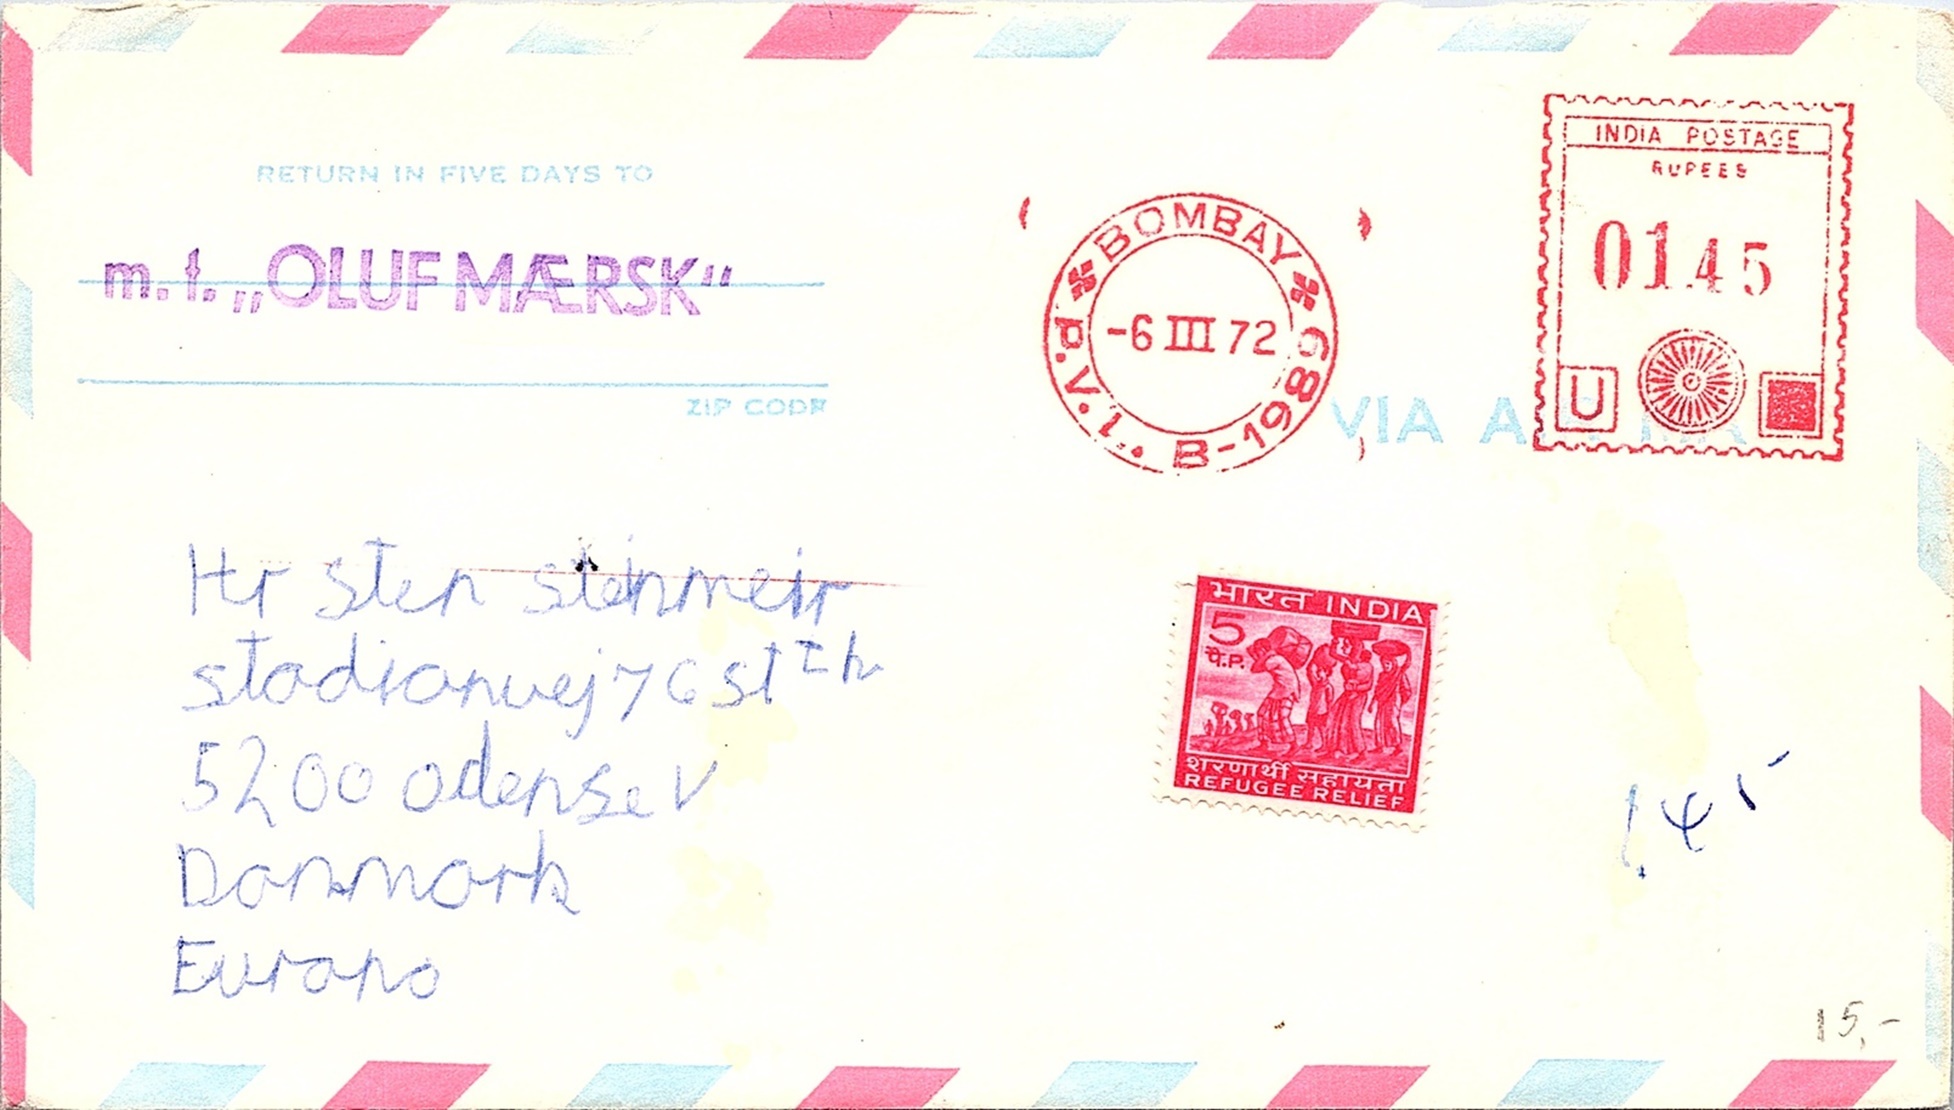 RETURN IN FIVE DAYS TO
m.t. „OLUF MÆRSK“
ZIP CODE
BOMBAY
-6 III 72
P.V.I. B-1989
INDIA POSTAGE
RUPEES
01.45
U
VIA A
Hr Sten steinmeir
stadionvej 76 st th
5200 odense V
Danmark
Europa
भारत INDIA
5
पै.P.
शरणार्थी सहायता
REFUGEE RELIEF
1.45
15,-